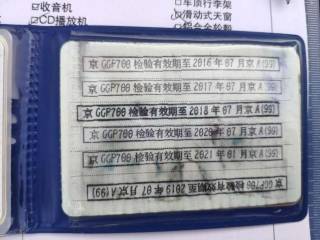 ☑收音机
☑CD播放机
☐车顶行李架
☑滑动式天窗
京 GGP700 检验有效期至 2016 年 07 月京A(99)
京 GGP700 检验有效期至 2017 年 07 月京A(99)
京 GGP700 检验有效期至 2018 年 07 月京A(99)
京 GGP700 检验有效期至 2020 年 07 月京A(99)
京 GGP700 检验有效期至 2021 年 01 月京A(99)
京 GGP700 检验有效期至 2019 年 07 月京A(99)